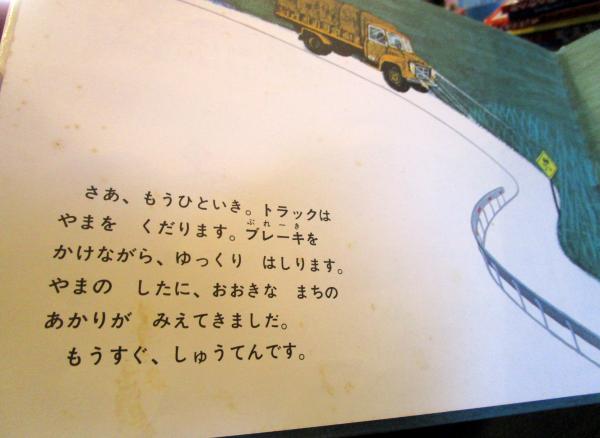 さあ、もうひといき。トラックは
やまを　くだります。ブレーキを
かけながら、ゆっくり　はしります。
やまの　したに、おおきな　まちの
あかりが　みえてきました。
もうすぐ、しゅうてんです。